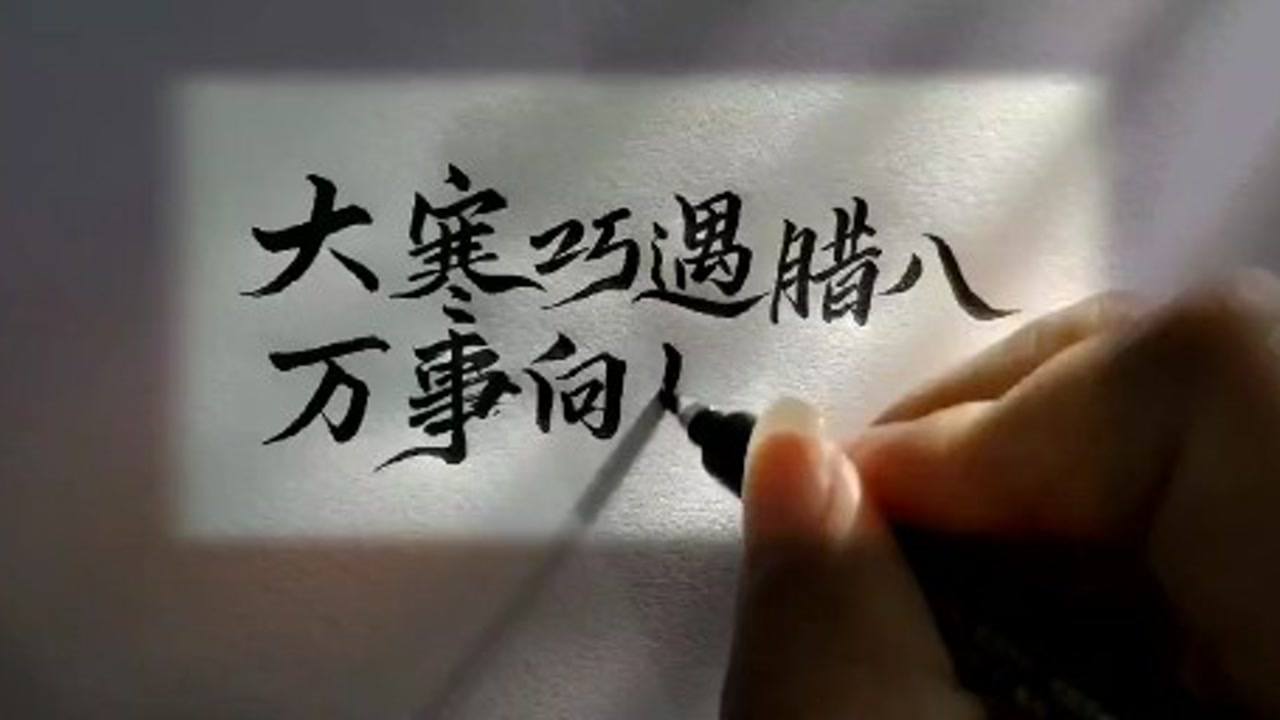 大寒巧遇腊八
万事向